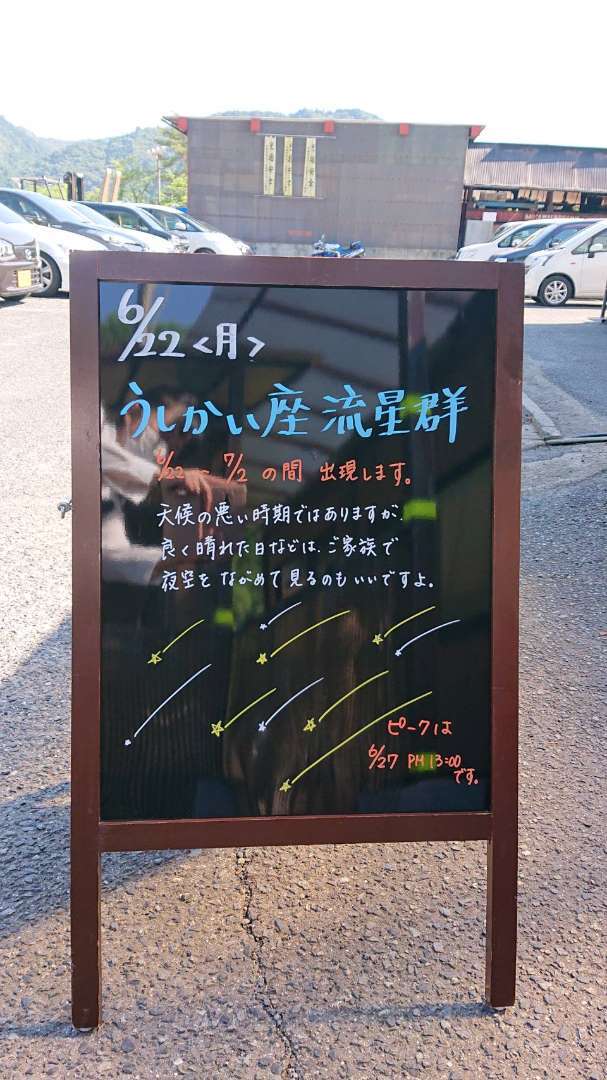 6/22<月>
うしかい座流星群
6/22~7/2の間 出現します。
天候の悪い時期ではありますが、
良く晴れた日などは、ご家族で
夜空をながめて見るのもいいですよ。
ピークは
6/27 PM13:00
です。